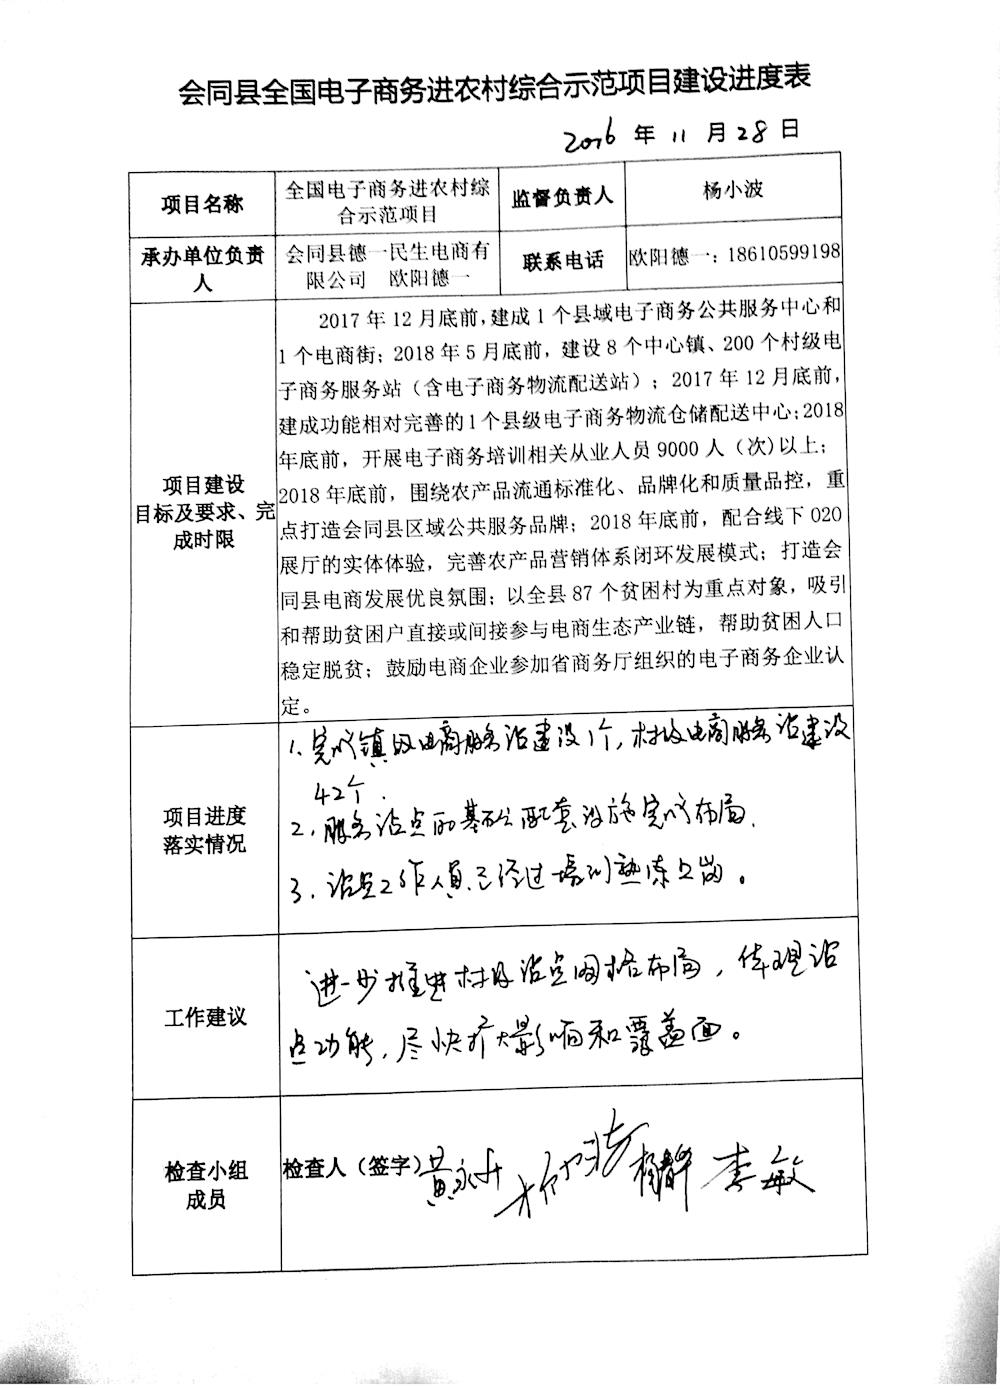 会同县全国电子商务进农村综合示范项目建设进度表
2016 年 11 月 28 日
项目名称
全国电子商务进农村综
合示范项目
监督负责人
杨小波
承办单位负责
人
会同县德一民生电商有
限公司 欧阳德一
联系电话
欧阳德一：18610599198
项目建设
目标及要求、完
成时限
2017 年 12 月底前,建成 1 个县域电子商务公共服务中心和
1 个电商街；2018 年 5 月底前，建设 8 个中心镇、200 个村级电
子商务服务站（含电子商务物流配送站）；2017 年 12 月底前，
建成功能相对完善的 1 个县级电子商务物流仓储配送中心;2018
年底前，开展电子商务培训相关从业人员 9000 人（次)以上；
2018 年底前，围绕农产品流通标准化、品牌化和质量品控，重
点打造会同县区域公共服务品牌；2018 年底前，配合线下 O2O
展厅的实体体验，完善农产品营销体系闭环发展模式；打造会
同县电商发展优良氛围；以全县 87 个贫困村为重点对象，吸引
和帮助贫困户直接或间接参与电商生态产业链，帮助贫困人口
稳定脱贫；鼓励电商企业参加省商务厅组织的电子商务企业认
定。
项目进度
落实情况
1、完成镇级电商服务站建设1个,村级电商服务站建设
42个.
2、服务站点的基础配套设施完成布局.
3、站点工作人员已经过培训熟练上岗。
工作建议
进一步推进村级站点网格布局，梳理站
点功能,尽快扩大影响和覆盖面。
检查小组
成员
检查人（签字）黄永升 杨静 李敏